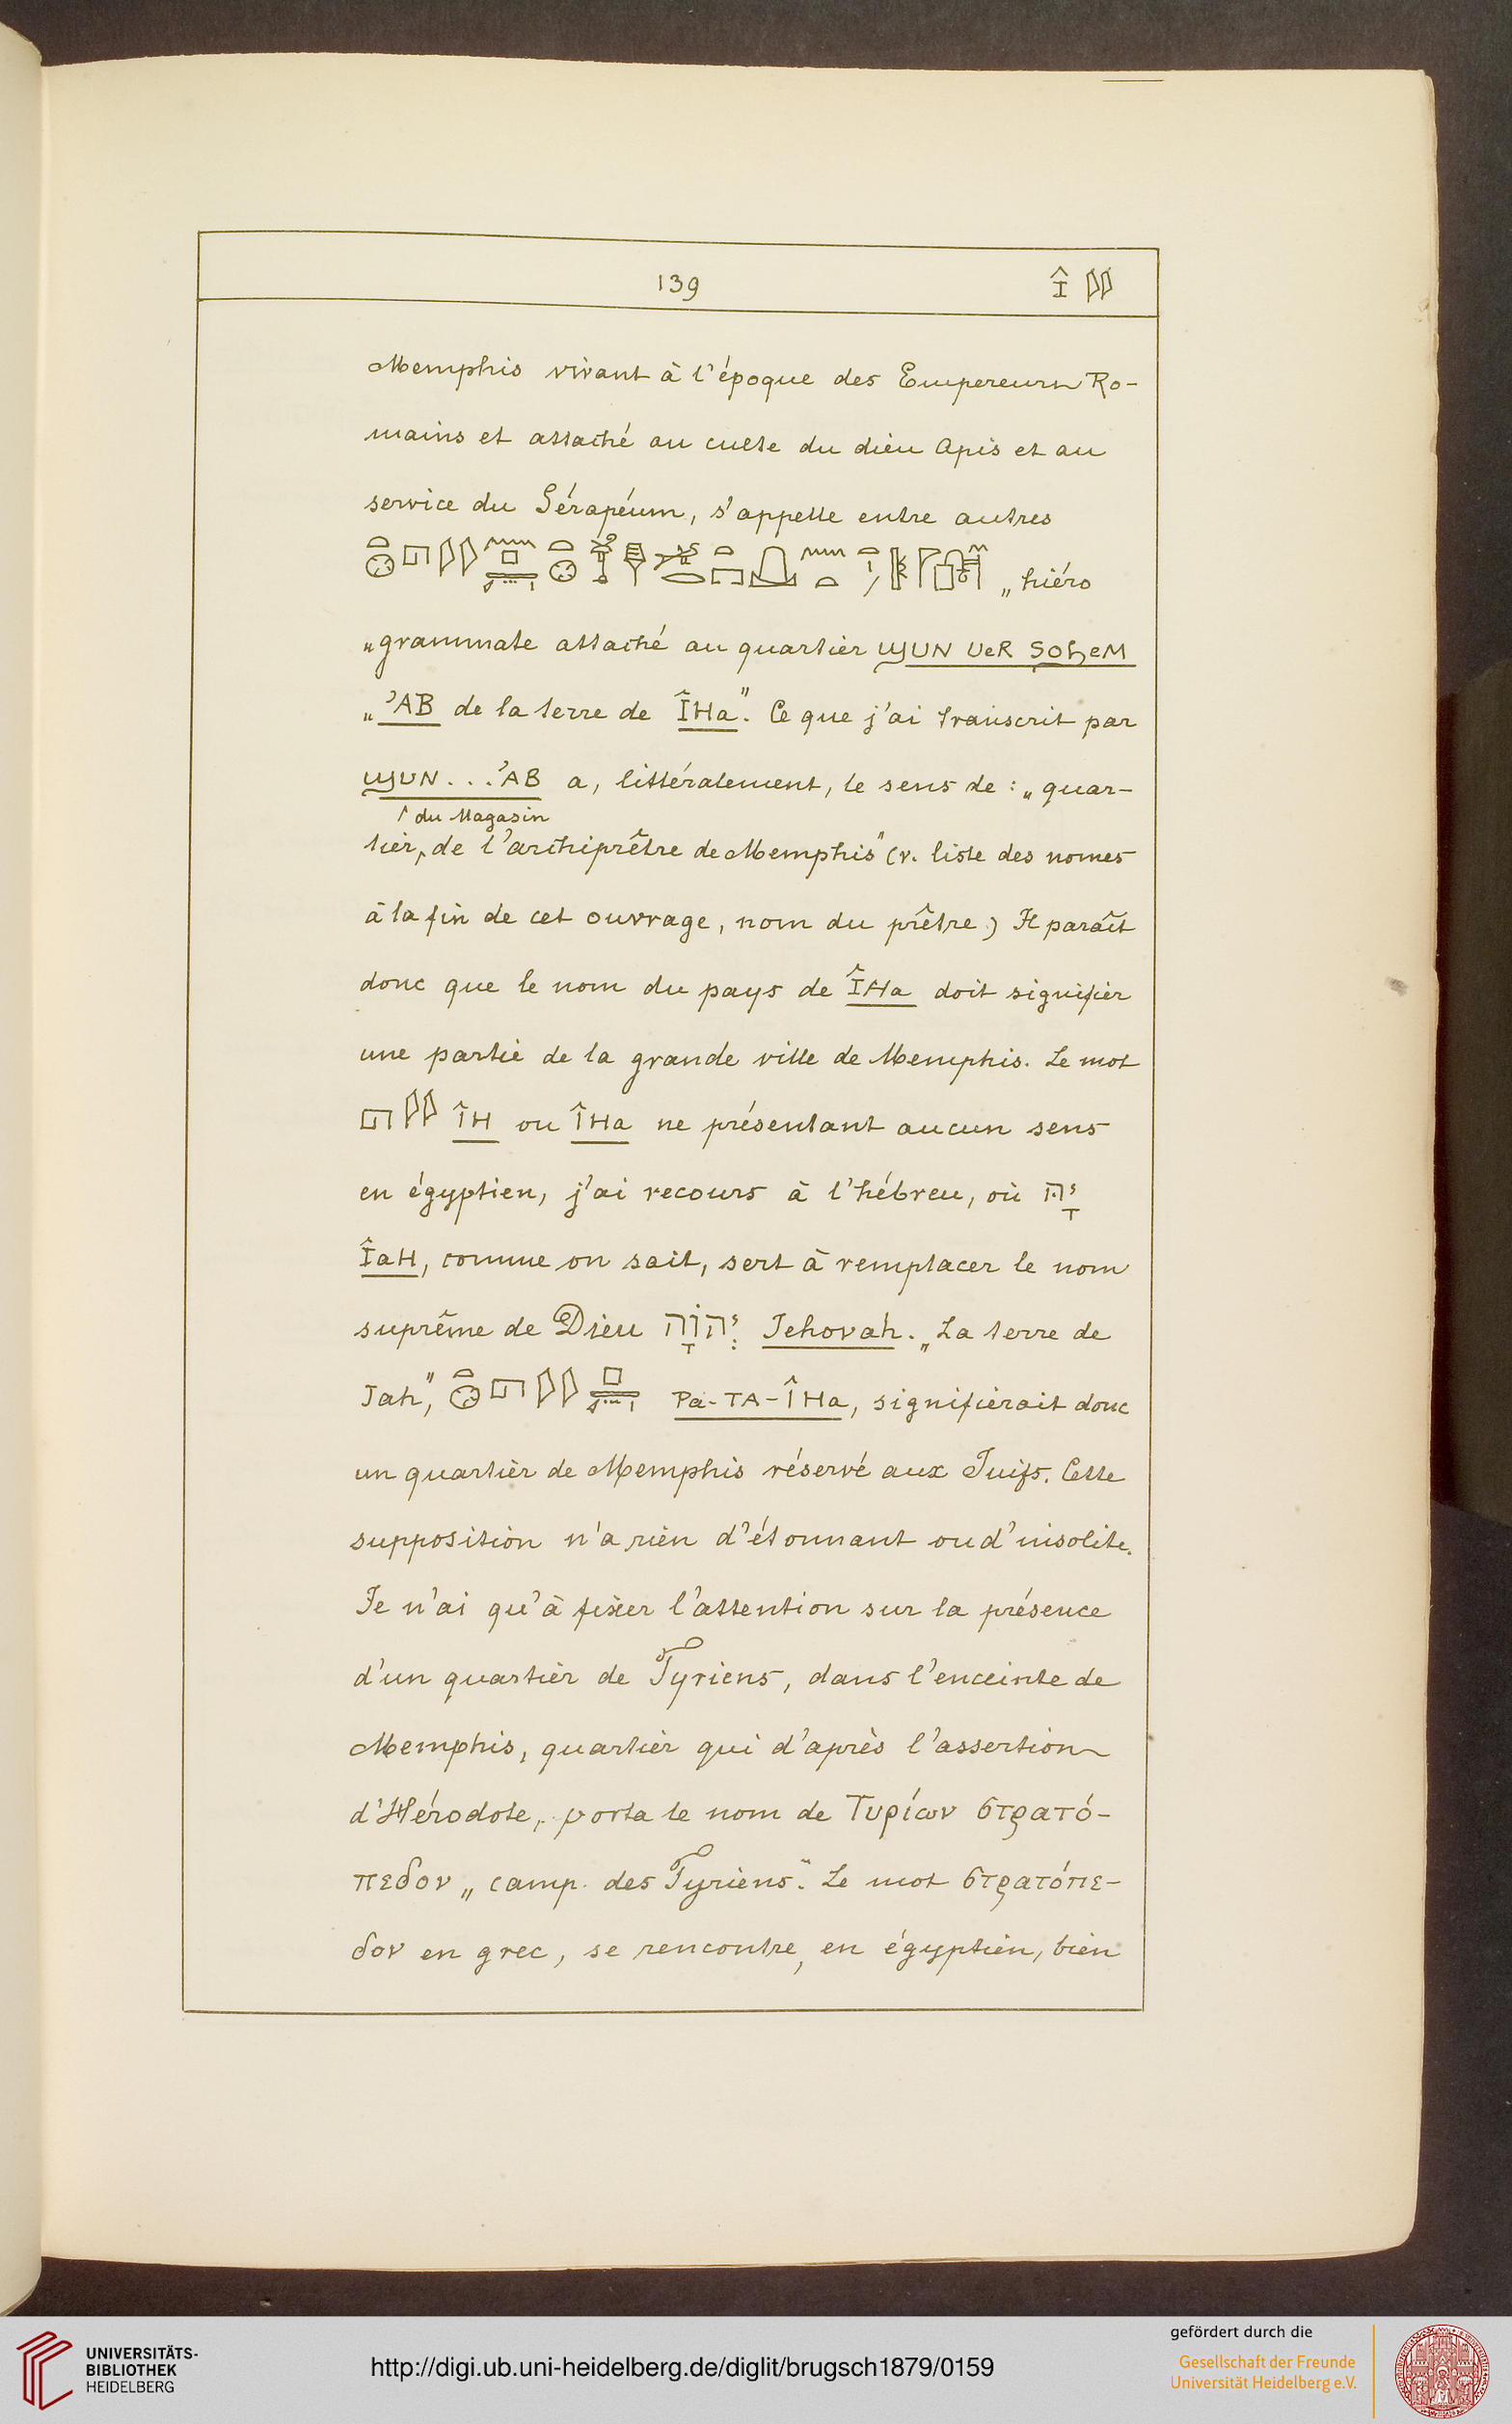 139 Î 𓇌
Memphis vivant à l'époque des Empereurs Ro-
mains et attaché au culte du dieu Apis et au
service du Sérapéum, s'appelle entre autres
„hiéro
„grammate attaché au quartier ϣUN UeR SOϦeM
„'AB de la terre de ÎHa". Ce que j'ai transcrit par
ϣUN...'AB a, littéralement, le sens de: „quar-
du Magasin
tier, de l'archiprêtre de Memphis" (v. liste des nomes
à la fin de cet ouvrage, nom du prêtre) Il paraît
donc que le nom du pays de ÎHa doit signifier
une partie de la grande ville de Memphis. Le mot
𓉔𓇌 ÎH ou ÎHa ne présentant aucun sens
en égyptien, j'ai recours à l'hébreu, où יָהּ
ÎaH, comme on sait, sert à remplacer le nom
suprême de Dieu יְהֹוָה Jehovah. „La terre de
Jah", Pa-TA-ÎHa, signifierait donc
un quartier de Memphis réservé aux Juifs. Cette
supposition n'a rien d'étonnant ou d'insolite.
Je n'ai qu'à fixer l'attention sur la présence
d'un quartier de Tyriens, dans l'enceinte de
Memphis, quartier qui d'après l'assertion
d'Hérodote, porta le nom de Τυρίων στρατό-
πεδον „camp des Tyriens". Le mot στρατόπε-
δον en grec, se rencontre, en égyptien, bien
UNIVERSITÄTS-
BIBLIOTHEK
HEIDELBERG
http://digi.ub.uni-heidelberg.de/diglit/brugsch1879/0159
gefördert durch die
Gesellschaft der Freunde
Universität Heidelberg e.V.